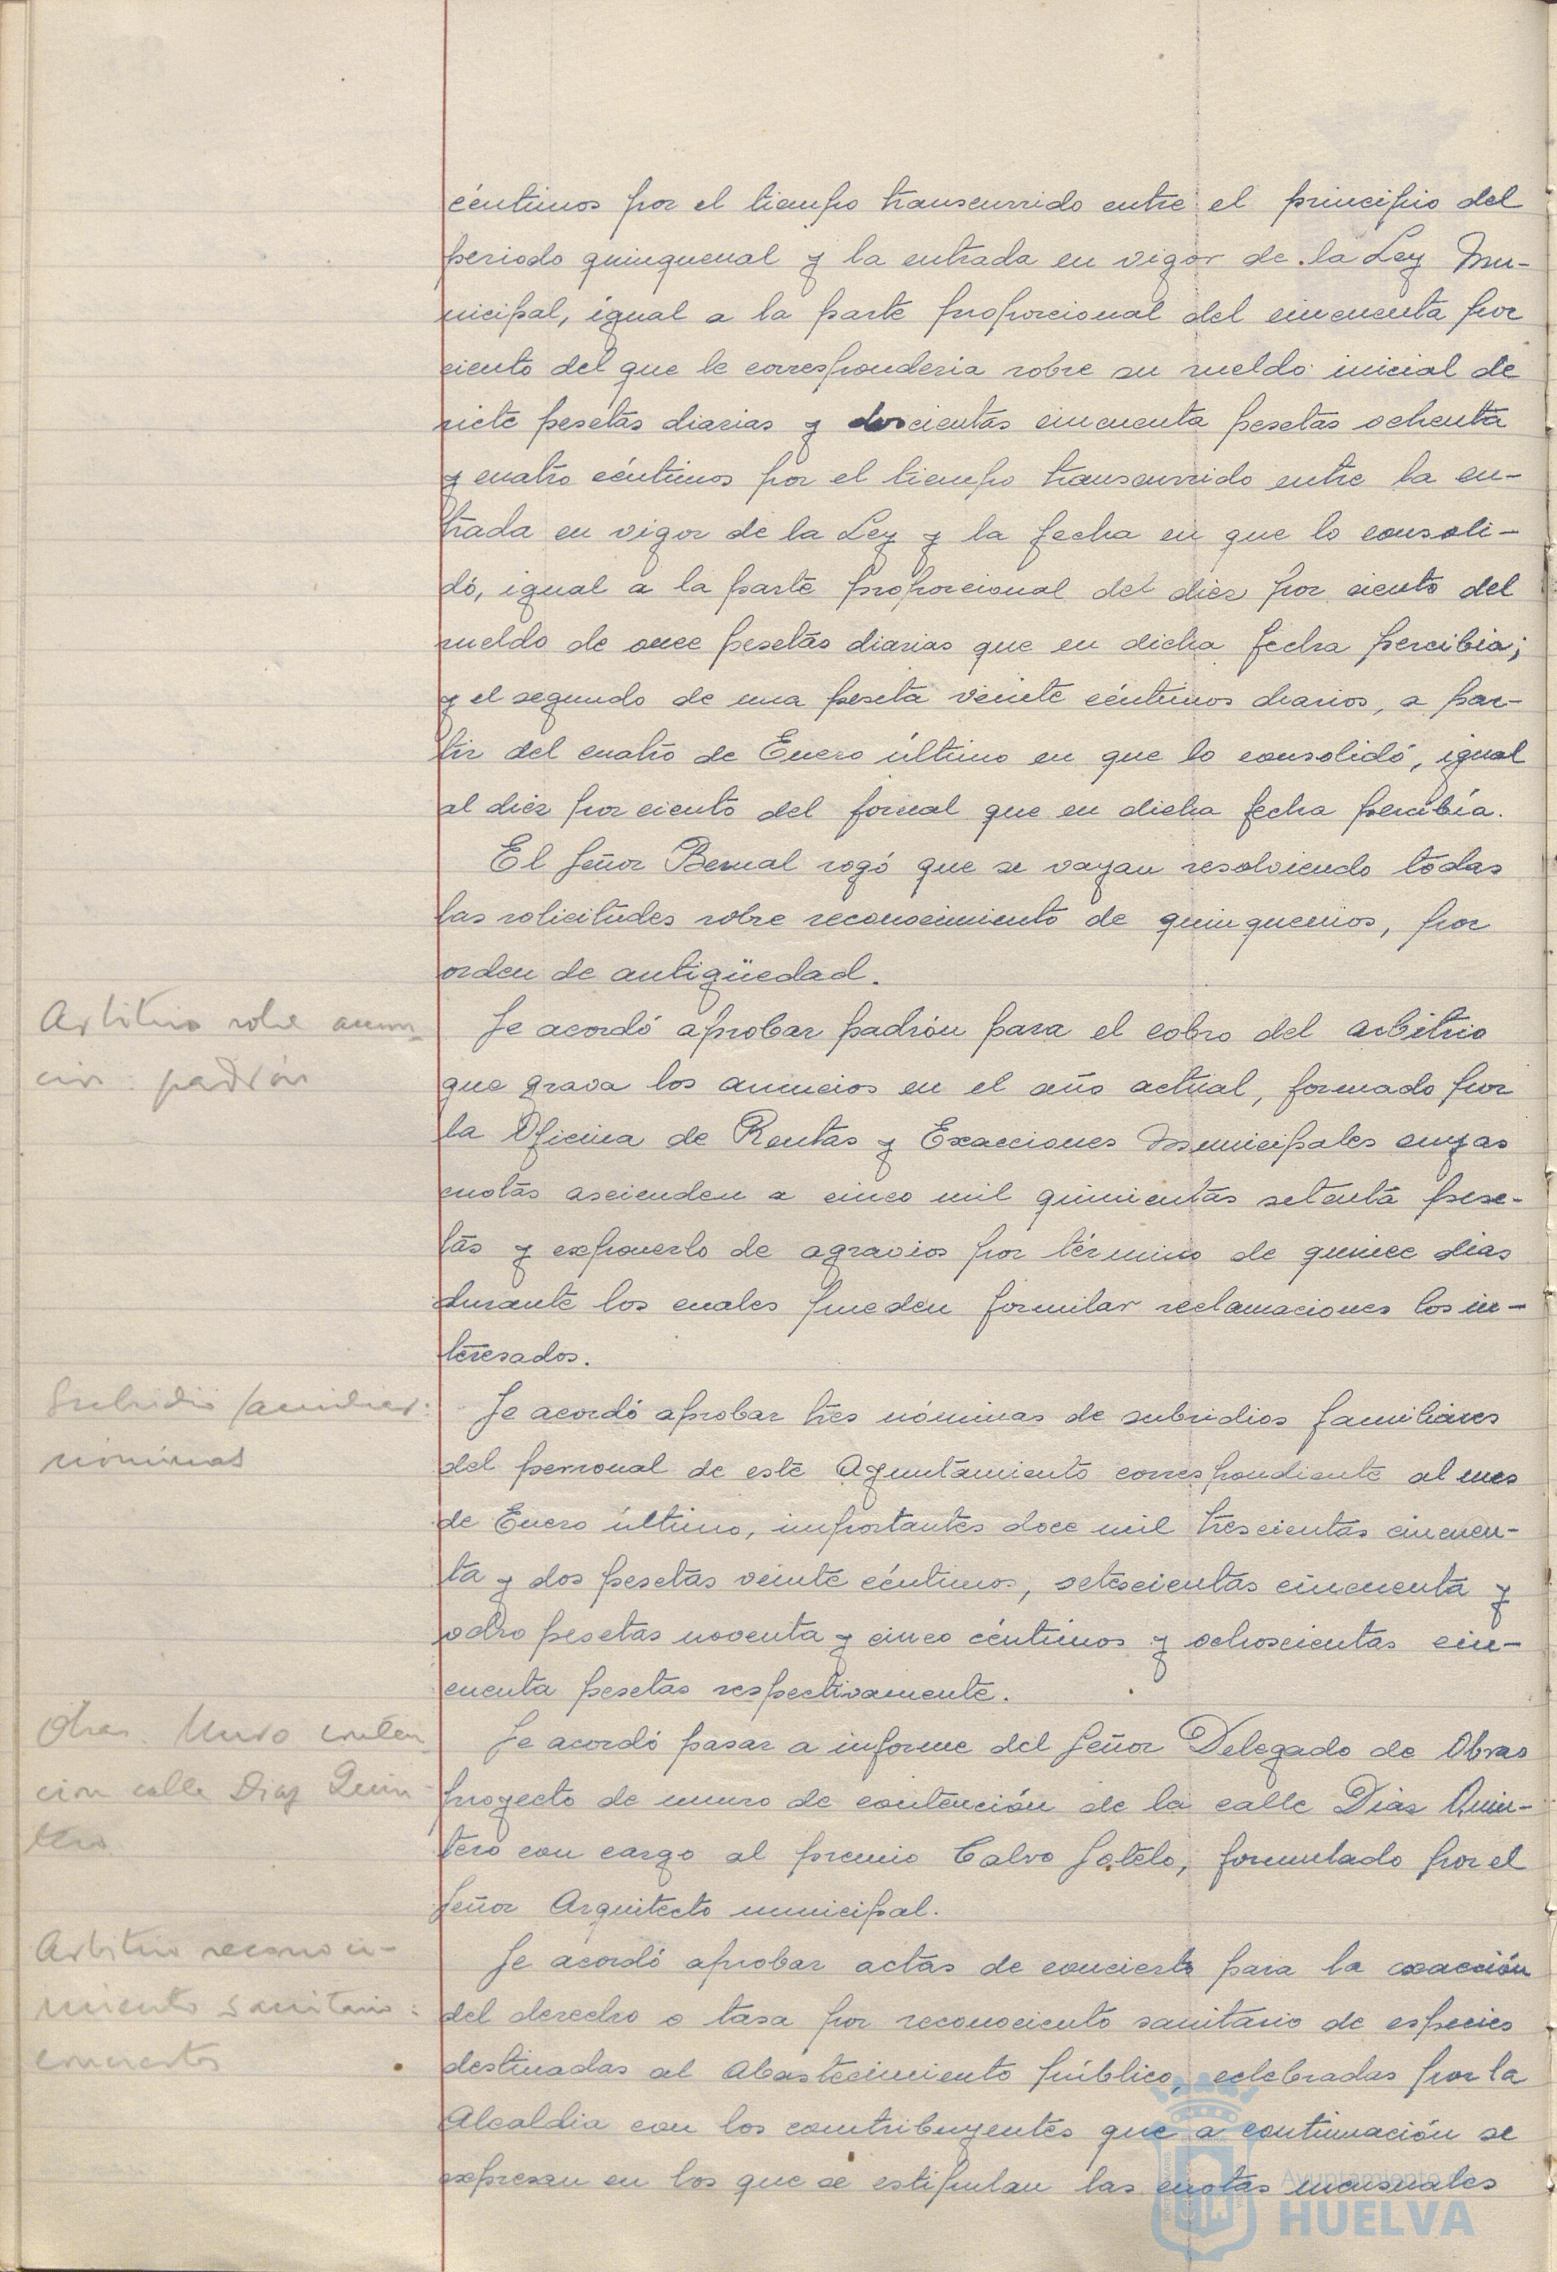 céntimos por el tiempo transcurrido entre el principio del
periodo quinquenal y la entrada en vigor de la Ley Mu-
nicipal, igual a la parte proporcional del cincuenta por
ciento del que le correspondería sobre su sueldo inicial de
siete pesetas diarias y doscientas cincuenta pesetas ochenta
y cuatro céntimos por el tiempo transcurrido entre la en-
trada en vigor de la Ley y la fecha en que lo consoli-
dó, igual a la parte proporcional del diez por ciento del
sueldo de once pesetas diarias que en dicha fecha percibía;
y el segundo de una peseta veinte céntimos diarios, a par-
tir del cuatro de Enero último en que lo consolidó, igual
al diez por ciento del jornal que en dicha fecha percibía.
El Señor Bernal rogó que se vayan resolviendo todas
las solicitudes sobre reconocimiento de quinquenios, por
orden de antigüedad.
Arbitrio sobre anun-
cios: padrón
Se acordó aprobar padrón para el cobro del arbitrio
que grava los anuncios en el año actual, formado por
la Oficina de Rentas y Exacciones Municipales cuyas
cuotas ascienden a cinco mil quinientas setenta pese-
tas y exponerlo de agravios por término de quince dias
durante los cuales pueden formular reclamaciones los in-
teresados.
Subsidio familiar:
nóminas
Se acordó aprobar tres nóminas de subsidios familiares
del personal de este Ayuntamiento correspondiente al mes
de Enero último, importantes doce mil trescientas cincuen-
ta y dos pesetas veinte céntimos, setescientas cincuenta y
ocho pesetas noventa y cinco céntimos y ochoscientas cin-
cuenta pesetas respectivamente.
Obras. Muro conten-
cion calle Diaz Quin-
tero
Se acordó pasar a informe del Señor Delegado de Obras
proyecto de muro de contención de la calle Diaz Quin-
tero con cargo al premio Calvo Sotelo, formulado por el
Señor Arquitecto municipal.
Arbitrio reconoci-
miento sanitario:
conciertos
Se acordó aprobar actas de concierto para la exacción
del derecho o tasa por reconociento sanitario de especies
destinadas al Abastecimiento público, celebradas por la
Alcaldia con los contribuyentes que a continuación se
expresan en los que se estipulan las cuotas mensuales
Ayuntamiento de
HUELVA